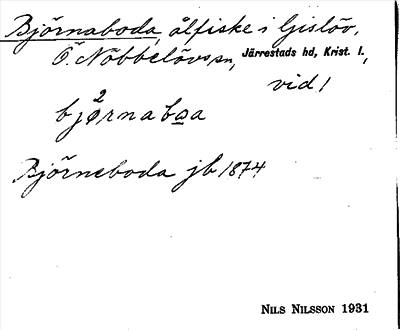 Björnaboda, ålfiske i Gislöv,
Ö. Nöbbelövs sn, Järrestads hd, Krist. l.,
vid 1
2
bjørnaboa
Björneboda jb 1874
NILS NILSSON 1931